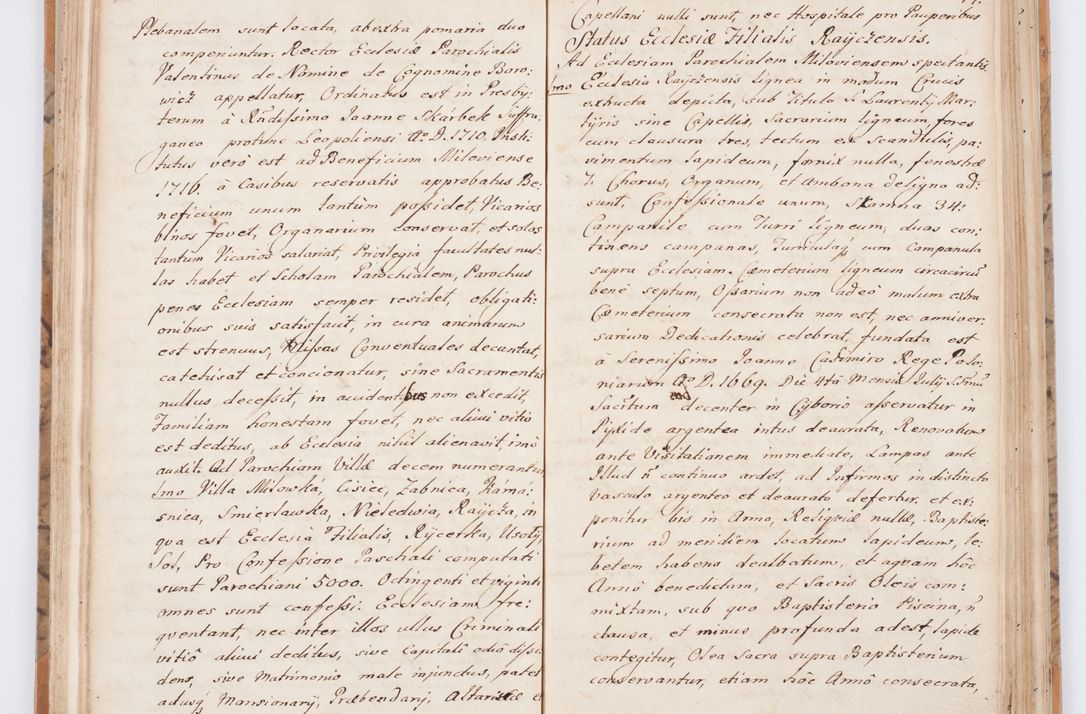 Plebanalem sunt locata, abextra pomaria duo
componuntur. Rector Ecclesiæ Parochialis
Valentinus de Nomine de Cognomine Boro=
wicz appellatur, Ordinatus est in Presby=
terum à Rñdissimo Joanne Skarbek Suffra=
ganeo protunc Leopoliensi Aº D. 1710. Insti=
tutus verò est ad Beneficium Miloviense
1716. à Casibus reservatis approbatus Be=
neficium unum tantum possidet, Vicarios
binos fovet, Organarium conservat, et solos
tantum Vicarios salariat, Privilegia facultates nul=
las habet et Scholam Parochialem, Parochus
penes Ecclesiam semper residet, obligati=
onibus suis satisfacit, in cura animarum
est strenuus, Missas Conventuales decantat,
catehisat et concionatur, sine Sacramentis
nullus decessit, in accidentibus non excedit,
Familiam honestam fovet, nec alicui vitio
est deditus, ab Ecclesia nihil alienavit, imò
auxit. Ad Parochiam Villæ decem numerantur
1mo Villa Milowka, Cisiec, Zabnica, Kamá=
snica, Smierlawka, Nieledwia, Raycza, in
qva est Ecclesia Filialis, Rycerka, Usoly,
Sol, Pro Confessione Paschali computati
sunt Parochiani 5000. Octingenti et viginti
omnes sunt confessi. Ecclesiam fre=
qventant, nec inter illos ullus Criminali
vitiô alicui deditus, sive Capitali odiô dissi
dens, sive Matrimonio male injunctus, patet
adusq Mansionarij, Præbendarij, Altaristæ et
Capellani nulli sunt, nec Hospitale pro Pauperibus
Status Ecclesiæ Filialis Rayczensis.
Ad Ecclesiam Parochialem Miloviensem spectantis.
1mo Ecclesia Rayczensis lignea in modum Crucis
exstructa depicta, sub Titulo S. Laurentij Mar=
tyris sine Capellis, Sacrarium ligneum, fores
cum clausura tres, tectum ex Scandulis, pa=
vimentum lapideum, fornix nulla, fenestræ
7. Chorus, Organum, et Ambona de ligno ad:
sunt, Confessionale unum, Skamna 34:
Campanile cum Turri ligneum, duas con:
tinens campanas, Turriculaq cum Campanula
supra Ecclesiam. Cæmeterium ligneum circucircũ
benè septum, Ossarium non adeò malum extra
Cæmeterium consecrata non est, nec anniver=
sarium Dedicationis celebrat, fundata est
à Serenissimo Joanne Casimiro Rege Polo=
niarum Aº D. 1669. Die 4tâ Mensis July
Sacrtum decenter in Cyborio asservatur in
Pyxide argentea intus deaurata, Renovatum
ante Visitationem immediate, Lampas ante
Illud ñ continuo ardet, ad Infirmos in distincto
vasculo argenteo et deaurato defertur, et ex=
ponitur bis in Anno, Reliqviæ nullæ, Baptiste=
rium ad meridiem locatum lapideum, le=
betem habens dealbatum, et aqvam hôc
Annô benedictam, et Sacris Oleis com=
mixtam, sub qvo Baptisterio Piscina, ñ
clausa, et minus profunda adest, lapide
contegitur, Olea Sacra supra Baptisterium
conservantur, etiam hôc Annô consecrata,